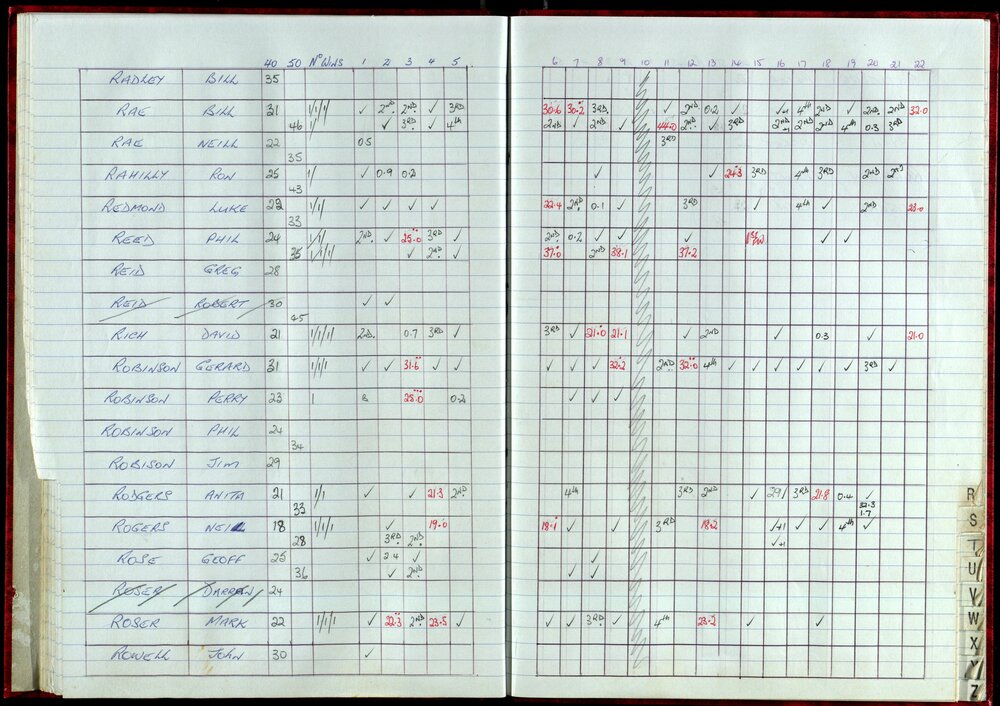 40 50 No WINS 1 2 3 4 5 6 7 8 9 10 11 12 13 14 15 16 17 18 19 20 21 22
RADLEY BILL 35
RAE BILL 21 1/1/1 ✓ 2ND 2ND ✓ 3RD 30.6 30.2 3RD ✓ 2ND 0.2 ✓ 4th 2ND ✓ 2ND 2ND 32.0
46 1/ ✓ 3RD ✓ 4th 2ND ✓ 2ND ✓ 44.0 2ND ✓ 3RD 2ND 2ND 2ND 4th 0.3 3RD
RAE NEILL 22 0.5 3RD
35
RAHILLY RON 25 1/ ✓ 0.9 0.2 ✓ ✓ 24.3 3RD 4th 3RD 2ND 2ND
43
REDMOND LUKE 22 1/1/ ✓ ✓ ✓ ✓ 22.4 2ND 0.1 ✓ 3RD ✓ 4th ✓ 2ND 22.0
33
REED PHIL 24 2ND ✓ 25.0 3RD ✓ 2ND 0.2 ✓ ✓ ✓ ✓ ✓
35 1/1/1/ ✓ 2ND ✓ 37.0 2ND 38.1 37.2
REID GREG 28
REID ROBERT 30 ✓ ✓
45
RICH DAVID 21 1/1/1/ 0.7 3RD ✓ 3RD ✓ 21.0 21.1 ✓ 2ND ✓ 0.3 ✓ 21.0
ROBINSON GERARD 31 1/1/1 ✓ ✓ 31.6 ✓ ✓ ✓ ✓ ✓ 32.2 2ND 32.0 4th ✓ ✓ ✓ ✓ ✓ ✓ 3RD ✓
ROBINSON PERRY 23 1 25.0 0.2 ✓ ✓ ✓
ROBINSON PHIL 24
34
ROBISON JIM 29
RODGERS ANITA 21 1/1 ✓ ✓ 21.3 2ND 4th 3RD 2ND ✓ 29/ 3RD 21.8 0.4 ✓
33 32.3
1.7
ROGERS NEIL 18 1/1/1 ✓ 19.0 18.1 ✓ ✓ 3RD 18.2 ✓+1 ✓ ✓ 4th ✓
28 3RD 2ND ✓+1
ROSE GEOFF 25 ✓ 2.4 ✓ ✓
36 ✓ 2ND ✓ ✓
ROSER DARREN 24
ROSER MARK 22 1/1/1 ✓ 22.3 2ND 23.5 ✓ ✓ ✓ 3RD ✓ 4th 23.2 ✓ ✓
ROWELL JOHN 30 ✓
R
S
T
U
V
W
X
Y
Z